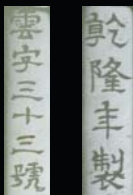 乾隆年製
雲字三十三號